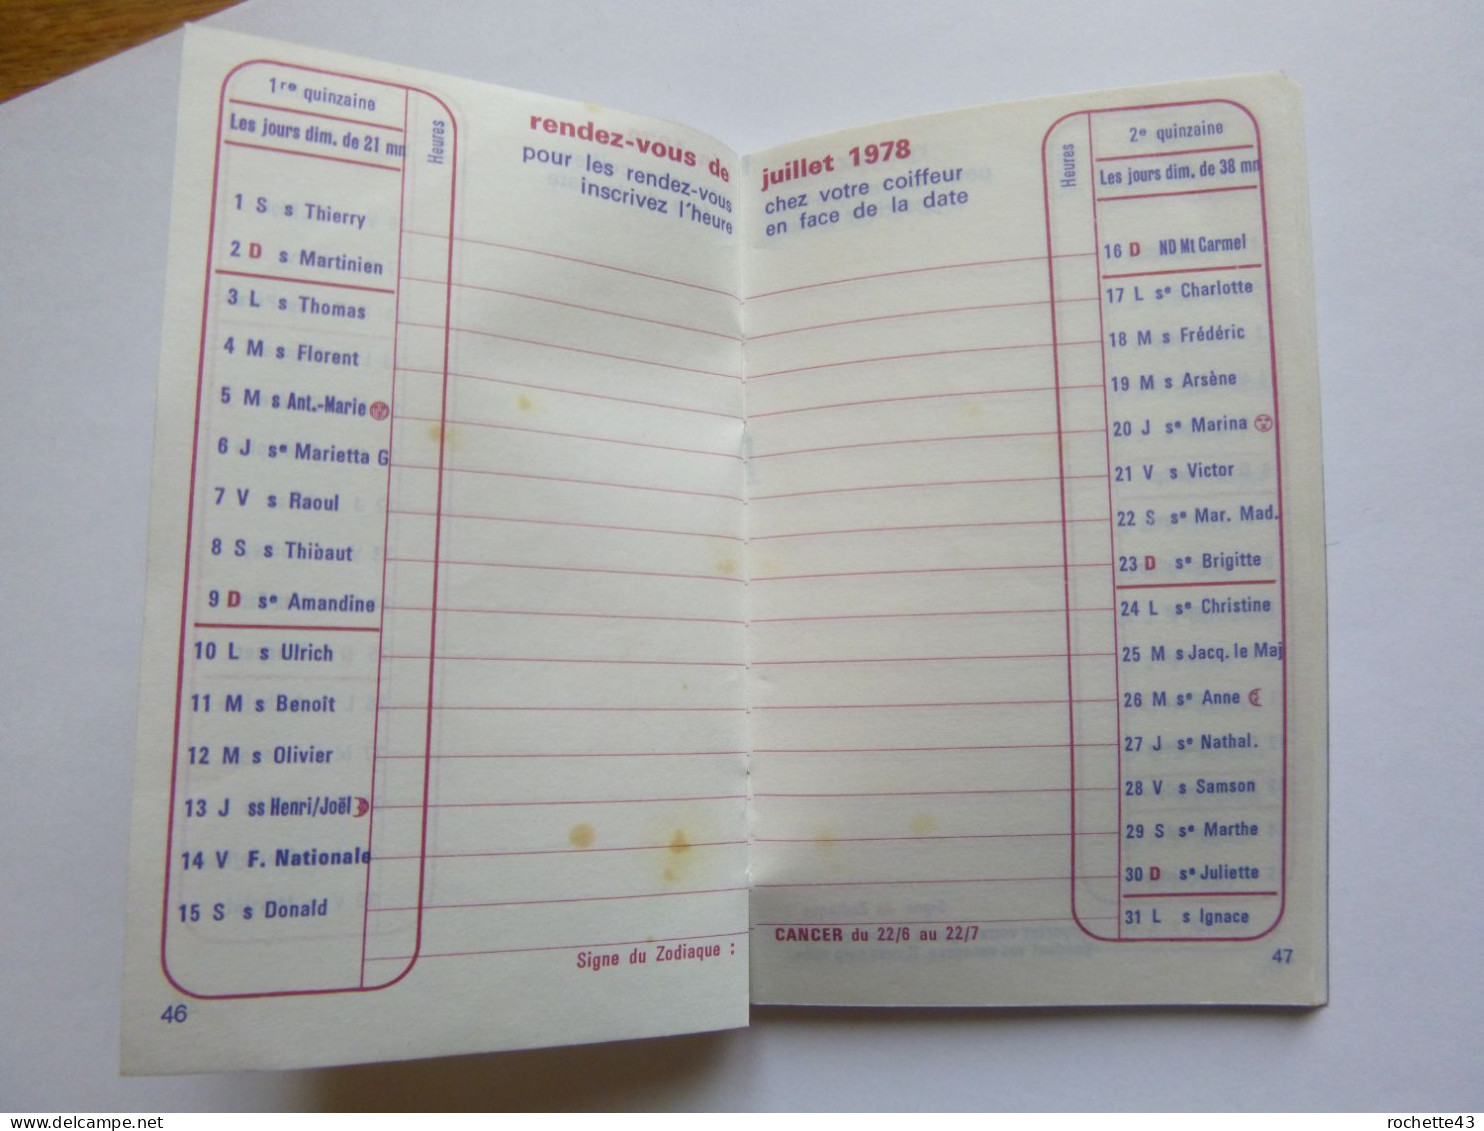 1re quinzaine
Les jours dim. de 21 mn
Heures
rendez-vous de
pour les rendez-vous
inscrivez l'heure
1 S s Thierry
2 D s Martinien
3 L s Thomas
4 M s Florent
5 M s Ant.-Marie
6 J se Marietta G
7 V s Raoul
8 S s Thibaut
9 D se Amandine
10 L s Ulrich
11 M s Benoît
12 M s Olivier
13 J ss Henri/Joël
14 V F. Nationale
15 S s Donald
Signe du Zodiaque :
46
juillet 1978
chez votre coiffeur
en face de la date
Heures
2e quinzaine
Les jours dim. de 38 mn
16 D ND Mt Carmel
17 L se Charlotte
18 M s Frédéric
19 M s Arsène
20 J se Marina
21 V s Victor
22 S se Mar. Mad.
23 D se Brigitte
24 L se Christine
25 M s Jacq. le Maj
26 M se Anne
27 J se Nathal.
28 V s Samson
29 S se Marthe
30 D se Juliette
31 L s Ignace
CANCER du 22/6 au 22/7
47
delcampe.net
rochette43